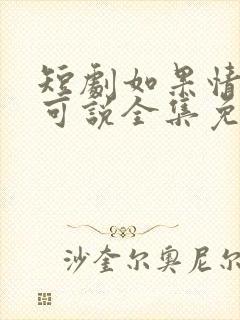 短劇如果情
可說全集免
沙奎尔奥尼尔